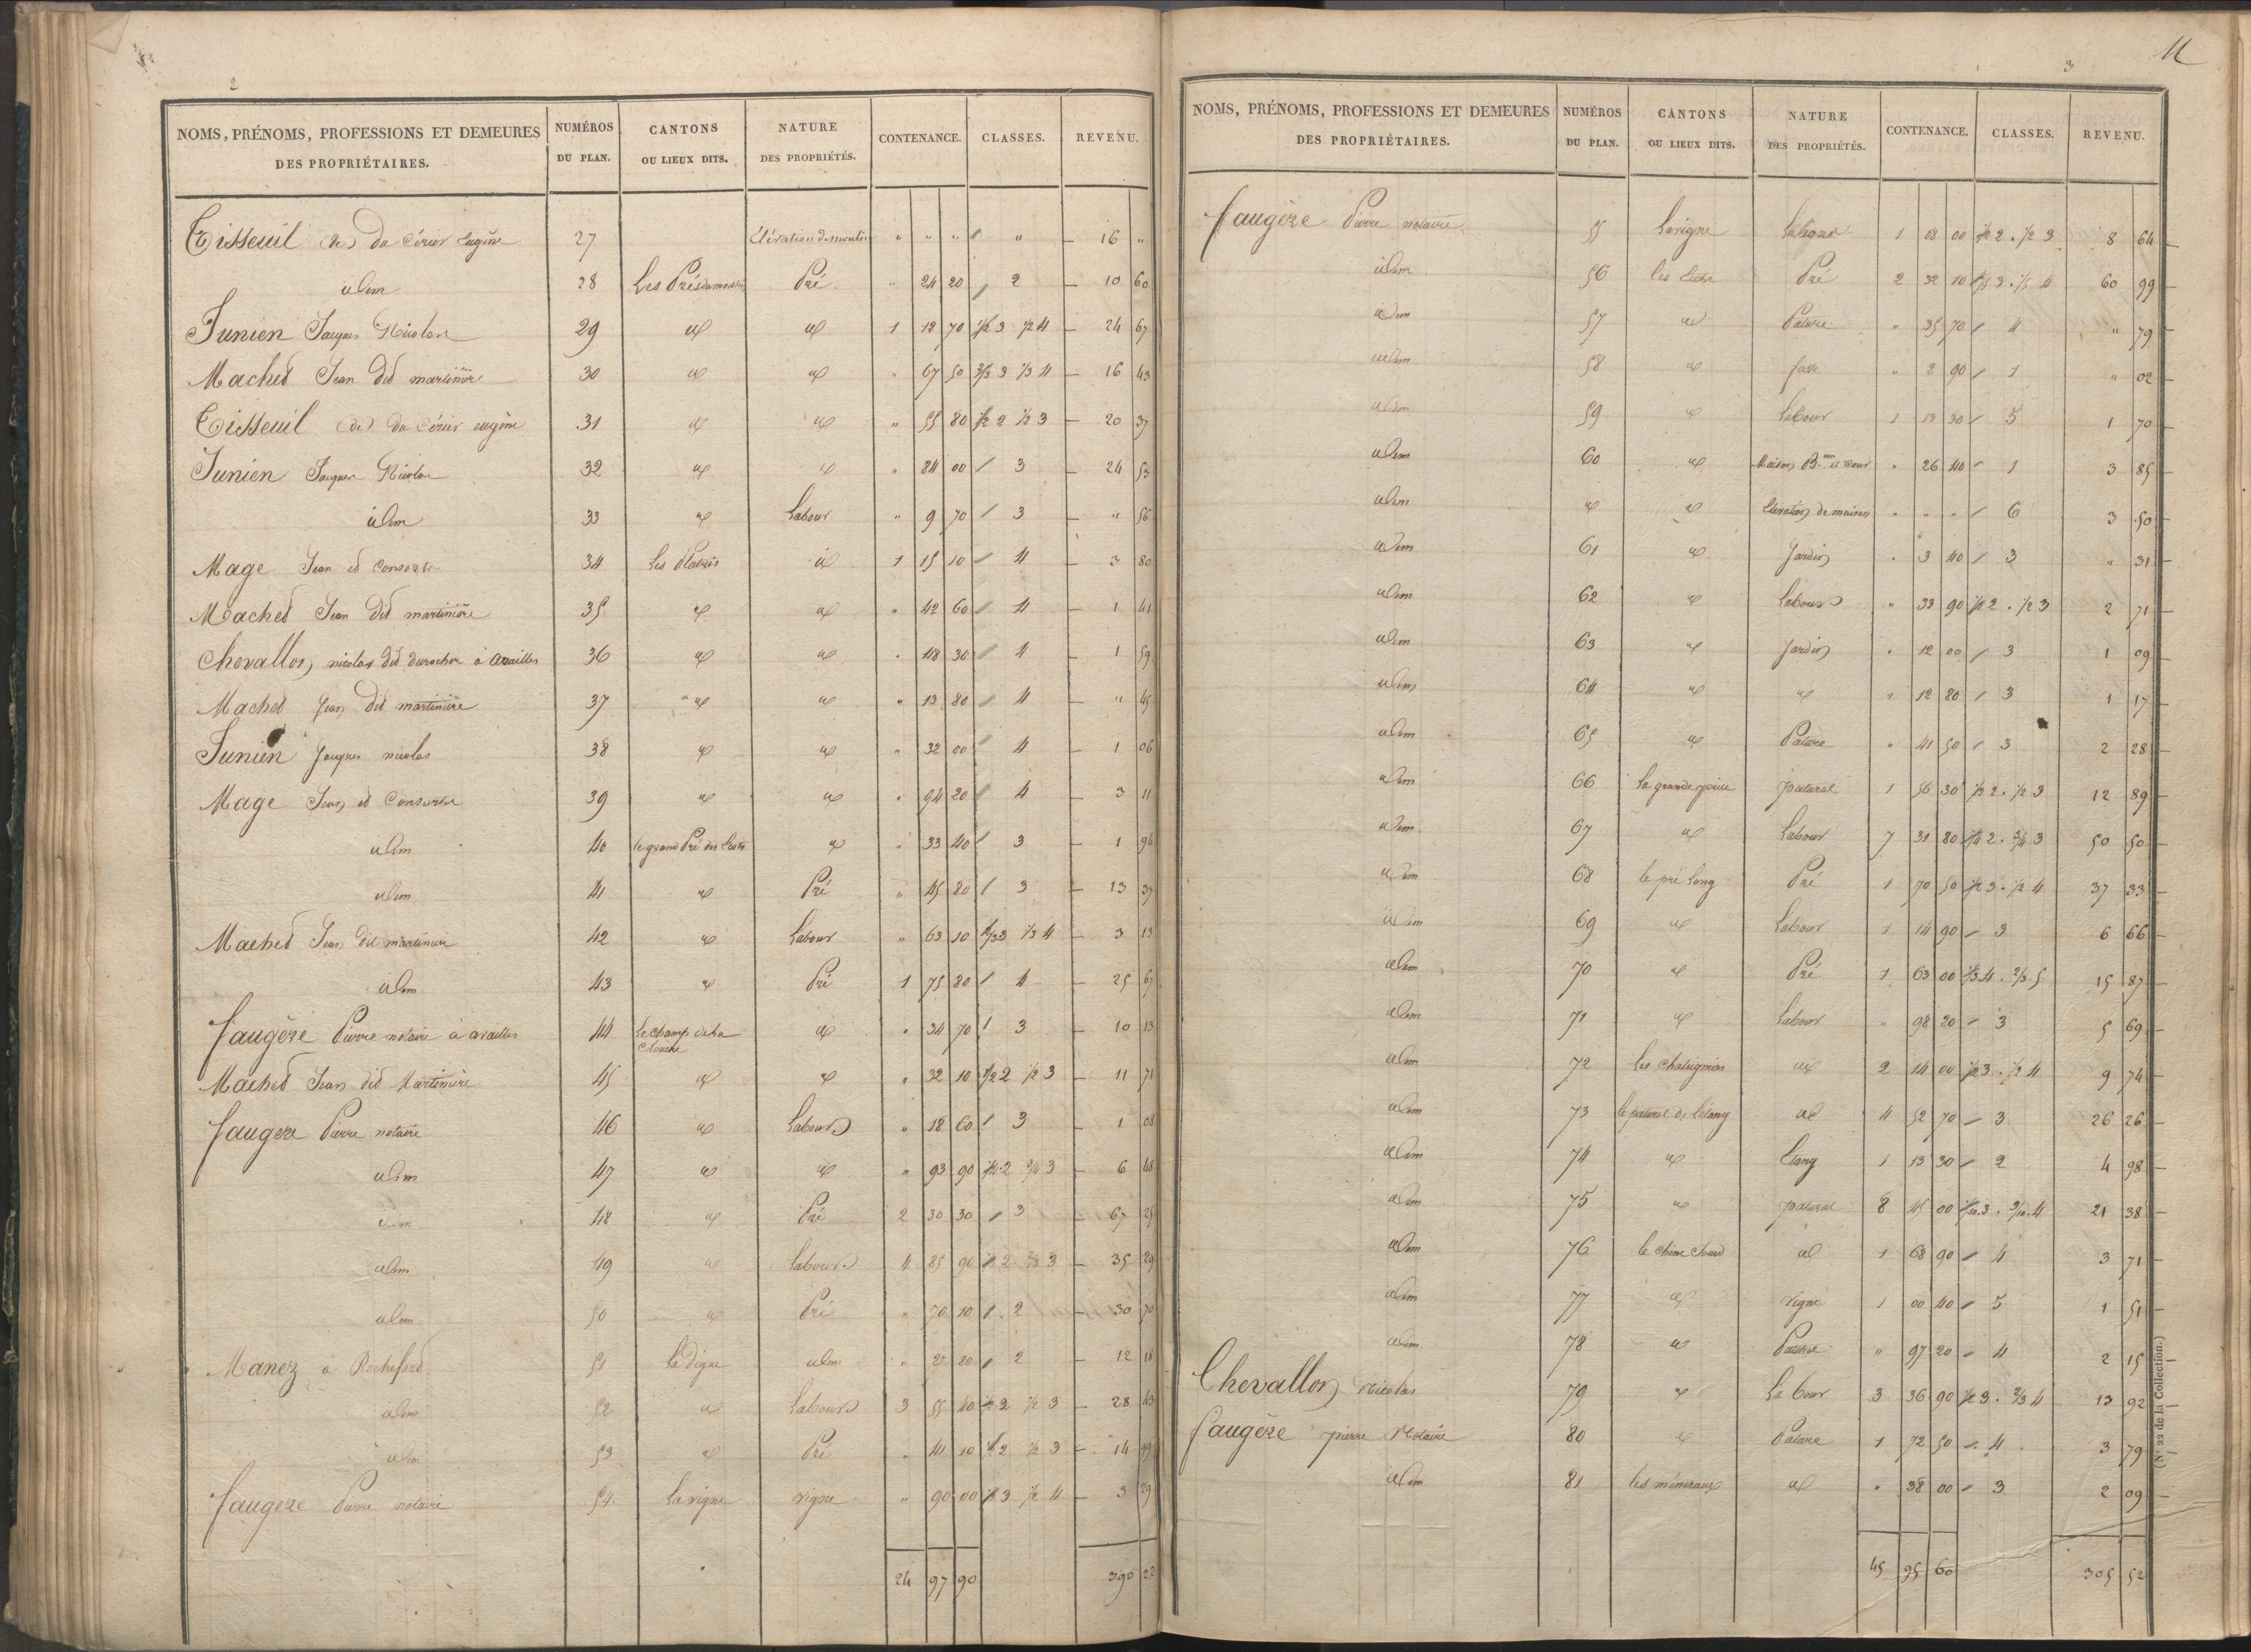 2
NOMS, PRÉNOMS, PROFESSIONS ET DEMEURES DES PROPRIÉTAIRES. NUMÉROS DU PLAN. CANTONS OU LIEUX DITS. NATURE DES PROPRIÉTÉS. CONTENANCE. CLASSES. REVENU.
Tisseuil (de) du Cérier Eugène 27 Elévation de moulin " " " / " — 16 "
idem 28 Les Prés Pré " 24 20 / 2 — 10 60
Junien Jacques Nicolas 29 id id 1 12 70 1/2 3 1/2 4 — 24 67
Mached Jean dit martinière 30 id id " 67 50 2/3 3 1/3 4 — 16 43
Tisseuil (de) du Cérier eugène 31 id id " 55 80 1/2 2 1/2 3 — 20 37
Junien Jacques Nicolas 32 id id " 84 00 / 3 — 24 53
idem 33 id Labour " 9 70 / 3 — " 56
Mage Jean et Consorts 34 Les id 1 15 10 / 4 — 3 80
Mached Jean dit martinière 35 id id " 42 60 / 4 — 1 41
Chevallon nicolas dit durocher à availles 36 id id " 48 30 / 4 — 1 59
Mached Jean dit martinière 37 id id " 13 80 / 4 — " 45
Junien Jacques nicolas 38 id id " 32 00 / 4 — 1 06
Mage Jean et Consorts 39 id id " 94 20 / 4 — 3 11
idem 40 le grand Pré des id " 33 40 / 3 — 1 94
idem 41 id Pré " 45 80 / 3 — 13 37
Mached Jean dit martinière 42 id Labour " 63 10 3 1/3 4 — 3 13
idem 43 id Pré 1 75 80 / 4 — 25 67
faugère Pierre notaire à availles 44 Le champ de la " 34 70 / 3 — 10 13
id
Mached Jean dit Martinière 45 id id " 32 10 1/2 2 1/2 3 — 11 71
faugere Pierre notaire 46 id Labour " 18 60 / 3 — 1 08
idem 47 id id " 93 90 1/4 2 3/4 3 — 6 48
idem 48 id Pré 2 30 30 / 3 — 67 25
idem 49 id Labour 4 85 90 2 3 — 35 29
idem 50 id Pré " 70 10 / 2 — 30 70
Manez à Rochefort 51 La digue idem " 27 20 / 2 — 12 18
idem 52 id Labour 3 55 40 1/2 2 1/2 3 — 28 43
idem 53 id Pré " 41 10 1/2 2 1/2 3 — 14 99
faugere Pierre notaire 54 La vigne vigne " 90 00 1/2 3 1/2 4 — 3 29
24 97 90 390
3
11
NOMS, PRÉNOMS, PROFESSIONS ET DEMEURES DES PROPRIÉTAIRES. NUMÉROS DU PLAN. CANTONS OU LIEUX DITS. NATURE DES PROPRIÉTÉS. CONTENANCE. CLASSES. REVENU.
faugère Pierre notaire 55 La vigne Labour 1 08 00 1/2 2 . 1/2 3 8 64
idem 56 les Pré 2 32 10 3 . 4 60 99
idem 57 id Pature " 35 70 / 4 " 79
idem 58 id " 2 90 / 1 " 02
idem 59 id Labour 1 13 30 / 5 1 70
idem 60 id Maison B.on et cour " 26 40 / 1 3 85
idem id id Elévation de maison " " " / 6 3 50
idem 61 id Jardin " 3 40 / 3 " 31
idem 62 id Labour " 33 90 1/2 2 . 1/2 3 2 71
idem 63 id Jardin " 12 00 / 3 1 09
idem 64 id id " 12 80 / 3 1 17
idem 65 id Pature " 41 50 / 3 2 28
idem 66 la grande pièce patural 1 56 30 1/2 2 . 1/2 3 12 89
idem 67 id Labour 7 31 80 1/4 2 . 3/4 3 50 50
idem 68 le pré long Pré 1 70 50 1/2 3 . 1/2 4 37 33
idem 69 id Labour 1 14 90 / 3 6 66
idem 70 id Pré 1 63 00 1/3 4 . 2/3 5 15 87
idem 71 id Labour " 98 20 / 3 5 69
idem 72 les chataigniers id 2 14 00 1/2 3 . 1/2 4 9 74
idem 73 le patural de l'étang id 4 52 70 / 3 26 26
idem 74 id Etang 1 13 30 / 2 4 98
idem 75 id patural 8 45 00 1/10 3 . 9/10 4 21 38
idem 76 le chêne id 1 68 90 / 4 3 71
idem 77 id vigne 1 00 40 / 5 1 51
idem 78 id Pature " 97 20 / 4 2 15
Chevallon Nicolas 79 id Labour 3 36 90 3 . 2/3 4 13 92
faugère pierre Notaire 80 id Pature 1 72 50 / 4 3 79
idem 81 les id " 38 00 / 3 2 09
45 95 60 305 52
(N° 22 de la Collection.)